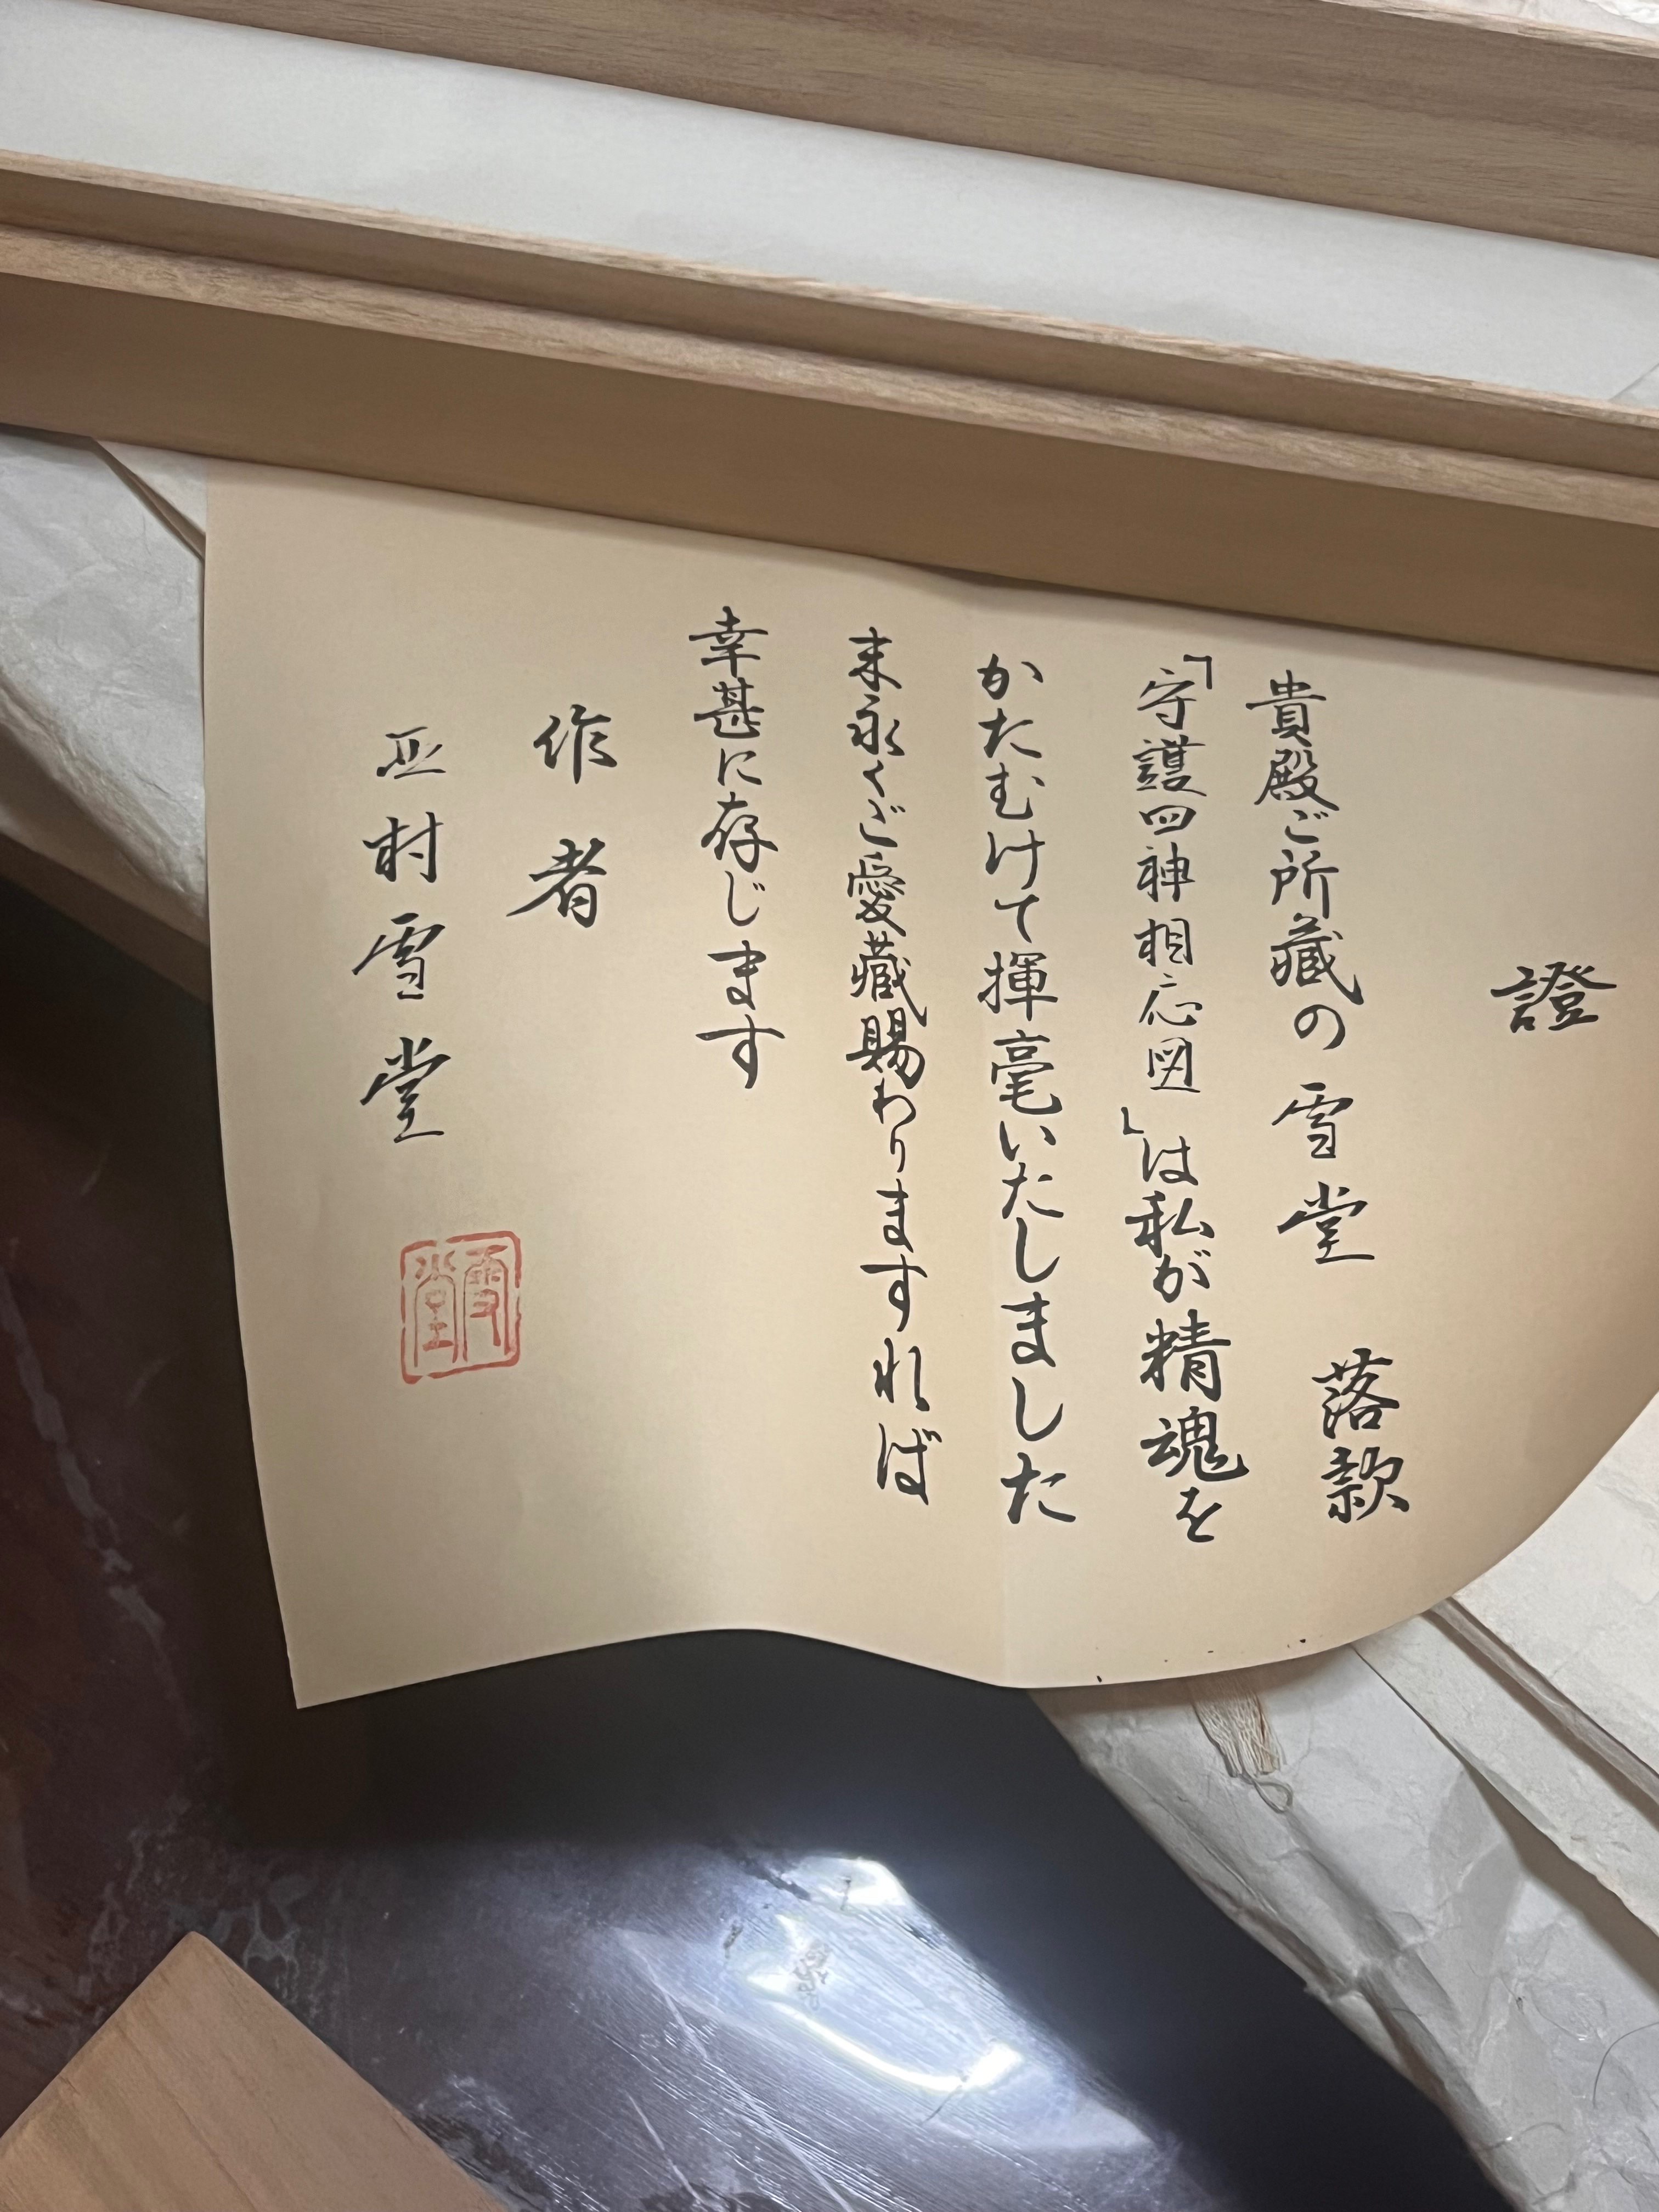 證
貴殿ご所蔵の 雪堂 落款
「守護四神相応図」は私が精魂を
かたむけて揮毫いたしました
末永くご愛蔵賜わりますれば
幸甚に存じます
作者
正村雪堂
雪堂